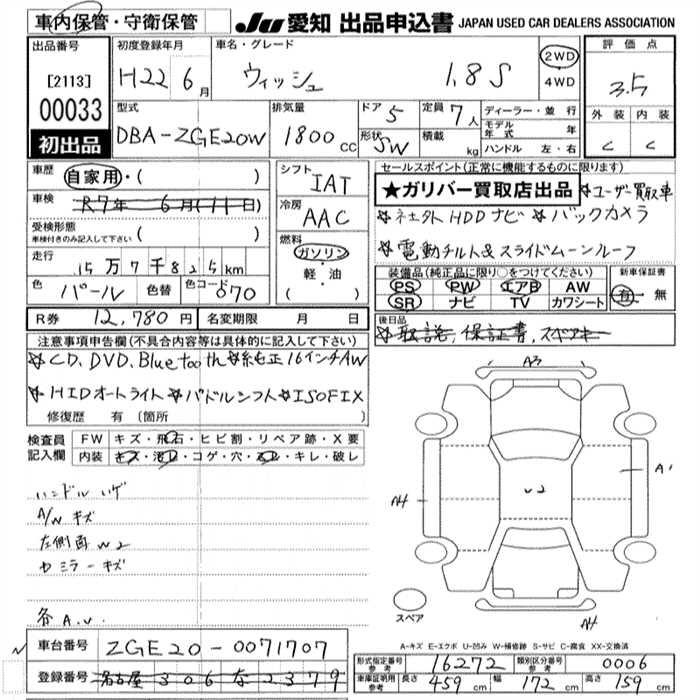 車内保管・守衛保管 JU 愛知 出品申込書 JAPAN USED CAR DEALERS ASSOCIATION
出品番号 初度登録年月 車名・グレード 評価点
[2113] H22 6月 ウィッシュ 1.8S 2WD 4WD 3.5
00033 型式 排気量 ドア 5 定員 7人 ディーラー・並行 外装 内装
初出品 DBA-ZGE20W 1800cc 形状 SW 積載 kg モデル年式 年 C C
ハンドル 左・右
車歴 自家用・( ) シフト IAT セールスポイント(正常に機能するものに限ります)
車検 R7年 6月(11日) ★ガリバー買取店出品 ☆ユーザー買取車
受検形態 車検付きのみ記入して下さい ( ) 冷房 AAC ☆社外HDDナビ ☆バックカメラ
走行 15万7千825km 燃料 ガソリン・軽・油 ( ) ☆電動チルト&スライドムーンルーフ
色 パール 色替 色コード 070 装備品(純正品に限り○をつけてください) 新車保証書
PS PW エアB AW 有・無
SR ナビ TV カワシート
R券 12,780円 名変期限 月 日 後日品
注意事項申告欄(不具合内容等は具体的に記入して下さい) ☆取説,保証書,スペアキー
☆CD、DVD、Bluetooth☆純正16インチAW
☆HIDオートライト ☆パドルシフト☆ISOFIX
修復歴 有 (箇所
検査員記入欄 FW キズ・飛石・ヒビ割・リペア跡・X要
内装 キズ・汚レ・コゲ・穴・スレ・キレ・破レ
ハンドル ハゲ
A/W キズ
左側面 W2
ミラーキズ
各A.U.
A3
A1
U2
A4
A4
スペア
A-キズ E-エクボ U-凹み W-補修跡 S-サビ C-腐食 XX-交換済
車台番号 ZGE20-0071707
登録番号 名古屋 306 な 2379
形式指定番号 参考 16272 類別区分番号 参考 0006
車庫証明用 参考 長さ 459cm 幅 172cm 高さ 159cm